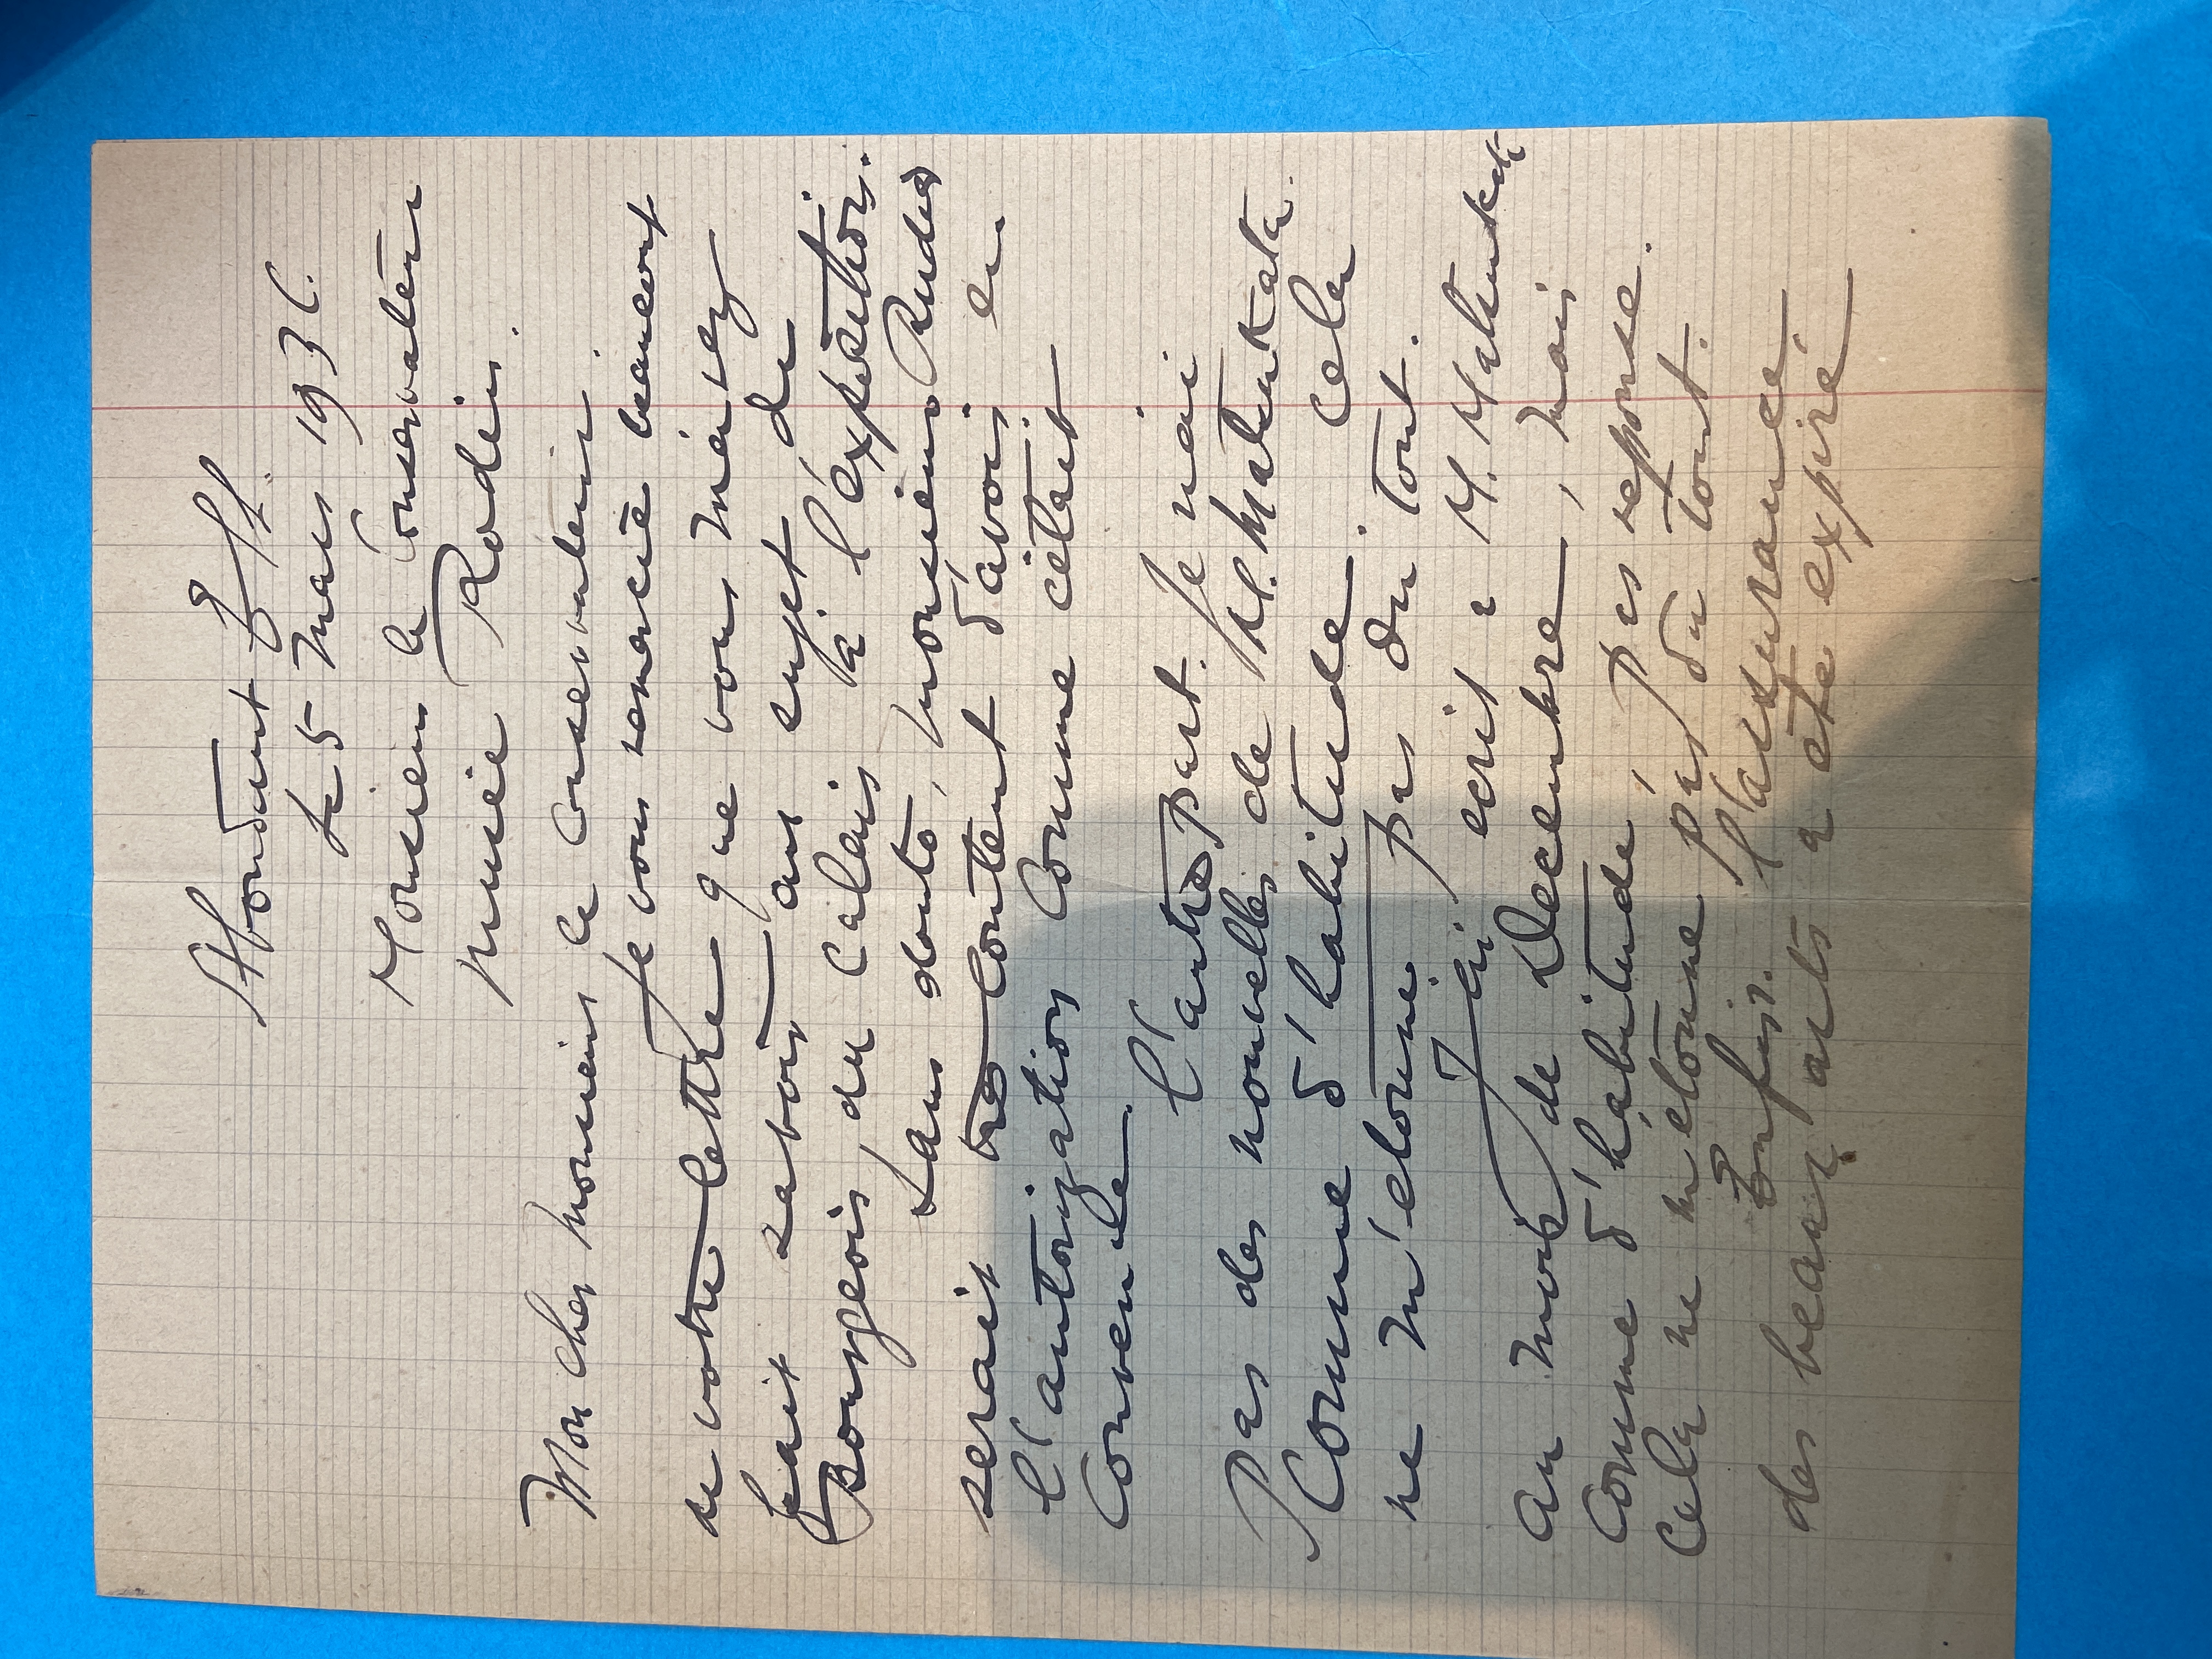 Abondant E & L.
Le 5 Mars 1936.
Monsieur le Conservateur
Musée Rodin.
Mon cher monsieur le Conservateur.
Je vous remercie beaucoup
de votre lettre que vous m'avez
fait savoir au sujet de
Bourgeois, de Calais à l'exposition.
Sans doute, monsieur Rudier
serais très content d'avoir eu
l'autorization Comme cétait
Convenue.
l'autre part. Je n'ai
Pas des nouvelles de M. Matsukata.
Comme d'habitude. Cela
ne m'etonne pas du tout.
J'ai ecrit a M. Matsukata
au mois de Decembre, mais
comme d'habitude, pas reponse.
Cela ne m'etonne pas du tout.
Enfin. l'assurance
des beaux arts a ete expiré